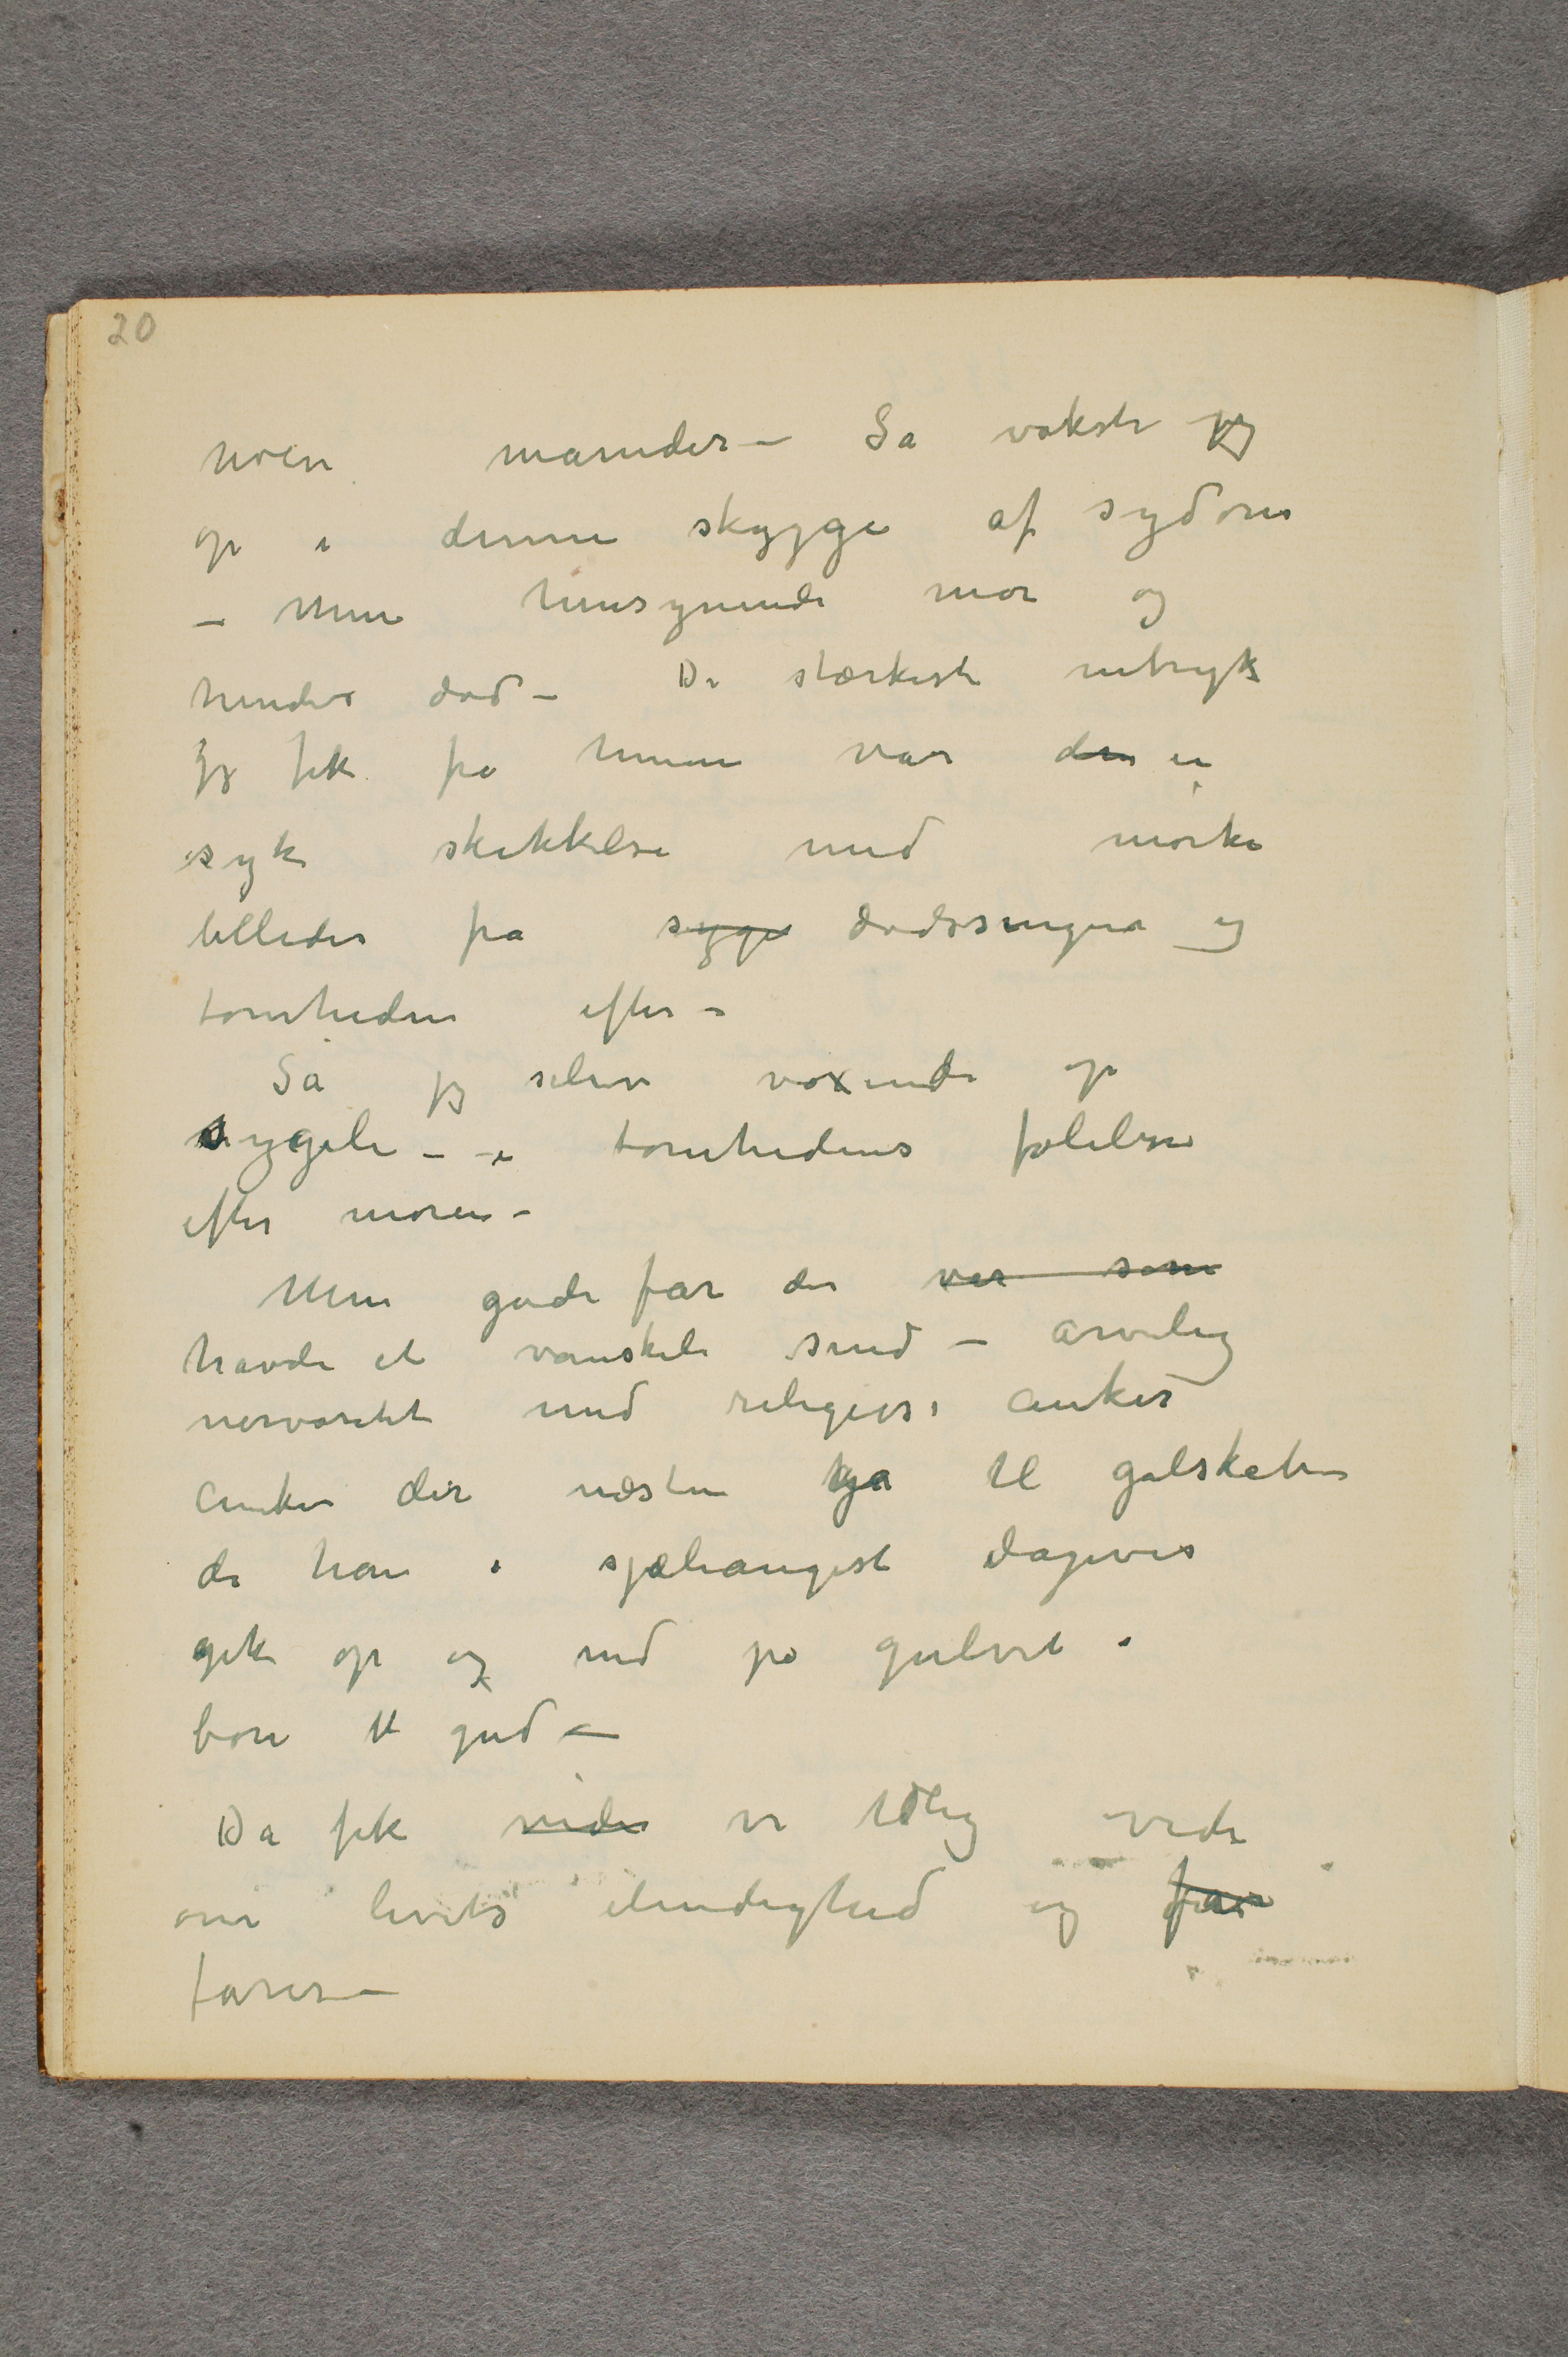 20
noen måneder – Så vokste jeg
op i denne skygge af sydom
– Min hensynende mor og
hendes død – De stærkeste intryk
jeg fik fra hende var den en
syk skikkelse med mørke
billeder fra syge dødssengen og
tomheden efter –
Så jeg selv voxende op
sygeli – i tomhedens følelse
efter moren –
Min gode far der var som
havde et vanskeli sind – arvelig
nervøsitet med religiøse anker
anker der næsten ga til galskaben
da han i sjæleangest dagevis
gik op og ned på gulvet i
bøn til gud –
Da fik vide vi tidlig vide
om livets elendighed og far
farer –